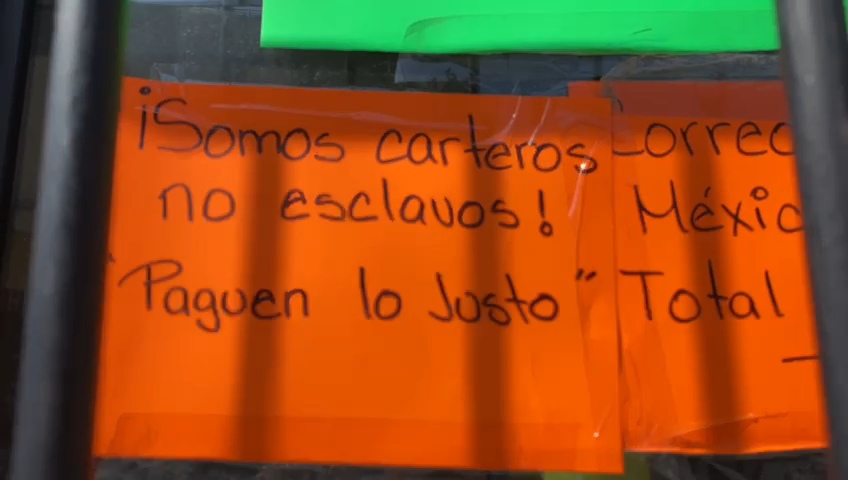 ¡Somos carteros
no esclavos!
"Paguen lo Justo"
Correo
México
Total